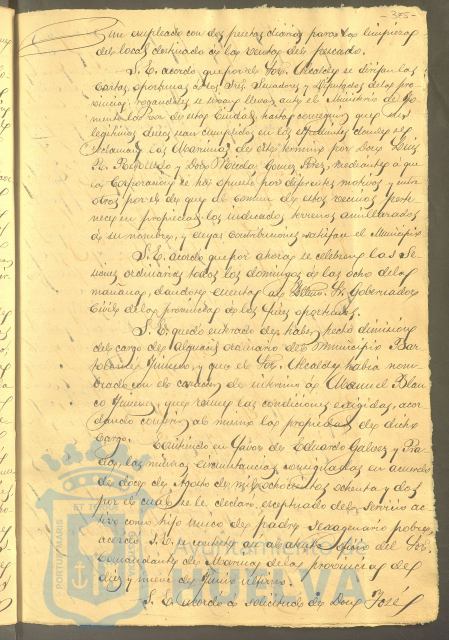 375-
un empleado con dos pesetas diarias para la limpieza
del local destinado a la venta del pescado.
S. E. acordó que por el Sor. Alcalde se dirijan las
cartas oportunas a los Sres. Senadores y Diputados de la pro-
vincia, rogandoles se sirvan llevar ante el Ministerio de Fo-
mento la voz de esta Ciudad, hasta conseguir que sus
legitimos deseos sean cumplidos en los espedientes donde se
reclaman las Marismas de este termino por Don Luis
R. y Don Nicolas Gomez Perez, mediante a que
la Corporacion se ha opuesto por diferentes motivos y entre
otros por el de que al comun de estos vecinos perte-
necen en propiedad los indicados terrenos amillarados
a su nombre, y cuyas contribuciones satisface el Municipio
S. E. acordó que por ahora se celebren las Se-
siones ordinarias todos los domingos a las ocho de la
mañana, dandose cuenta al Iltmo. Sr. Gobernador
Civil de la provincia a los fines oportunos.
S. E. quedó enterado de haber hecho dimision
del cargo de Alguacil ordinario del Municipio Bar-
tolome Jimenez, y que el Sor. Alcalde habia nom-
brado con el caracter de interino a Manuel Blan-
co Jimenez, que reune las condiciones exigidas, acor-
dando conferir al mismo la propiedad de dicho
cargo.
Existiendo en favor de Eduardo Galvez y
las mismas circunstancias consignadas en acuerdo
de doce de Agosto de mil ochocientos ochenta y dos
por el cual se le declaró exceptuado del servicio ac-
tivo como hijo unico de padre sexagenario pobre,
acordó S. E. se conteste al atento oficio del Sor.
Comandante de Marina de la provincia del
diez y nueve de Junio ultimo.
S. E. acordó a solicitud de Don José
Ayuntamiento de
HUELVA
PORTUS MARIS ET TERRAE